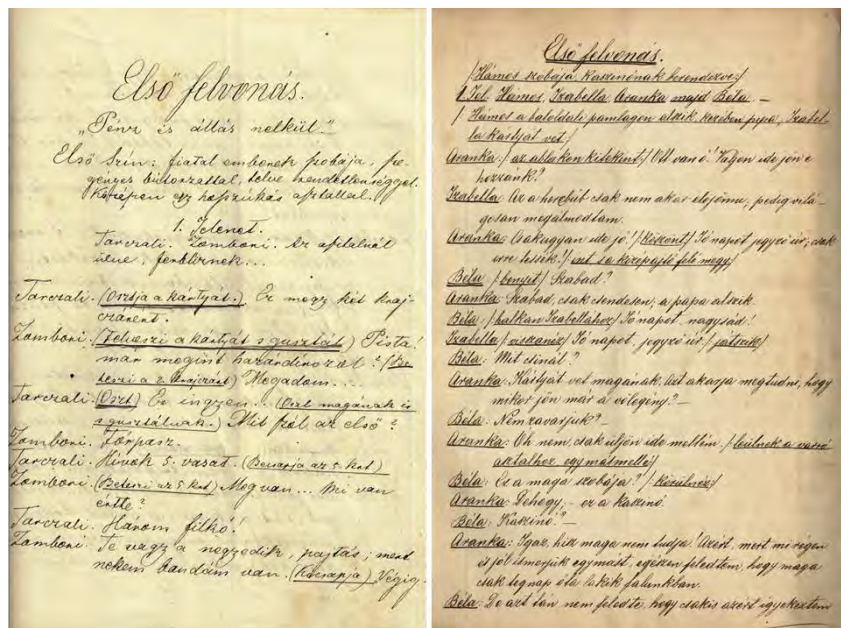 Első felvonás.
„Pénz és állás nélkül"
Első Szín: fiatal emberek szobája, sze-
gényes bútorzattal, telve rendetlenséggel.
Középen egy hosszúkás asztallal.
1. Jelenet.
Tarczali. Zamboni. Az asztalnál
ülve, ferbliznek...
Tarczali. (Osztja a kártyát.) Ez megy két kraj-
czárért.
Zamboni. (Felveszi a kártyát s gusztál) Pista!
már megint hazárdírozol? (Be-
teszi a 2 krajczárt) Megadom...
Tarczali. (Oszt) Ez ingyen... (Oszt magának is
s gusztálnak.) Mit szól az első?
Zamboni. Törpasz.
Tarczali. Hívok 5. vasat. (Becsapja az 5 krt)
Zamboni. (Beteszi az 5 krt) Megvan... Mi van
érte?
Tarczali. Három filkó!
Zamboni. Te vagy a negyedik, pajtás; mert
nekem bandám van. (Kicsapja) Végig
Első felvonás.
/Hámos szobája, kaszinónak berendezve/
1 Jel. Hámos, Izabella, Aranka majd Béla. —
/ Hámos a baloldali pamlagon alszik, kezében pipa, Izabel-
la kártyát vet/
Aranka: / az ablakon kitekint/ Ott van ő! Valjon ide jön e
hozzánk?
Izabella: Az a herzbúb csak nem akar előjönni, pedig vilá-
gosan megálmodtam.
Aranka: Csakugyan ide jő! /köszönt/ Jó napot jegyző úr, csak
erre tessék! / int a középajtó felé megy/
Béla: / benyit/ Szabad?
Aranka: Szabad, csak csendesen, a papa alszik.
Béla: / halkan Izabellához/ Jó napot, nagysád!
Izabella / viszonoz/ Jó napot, jegyző úr! / játszik/
Béla: Mit csinál?
Aranka: Kártyát vet magának. Azt akarja megtudni, hogy
mikor jön már a vőlegény? —
Béla: Nem zavarjuk? —
Aranka: Oh nem, csak üljön ide mellém. / leülnek a varró
asztalhoz egymás mellé/
Béla: Ez a maga szobája? / körülnéz/
Aranka: Dehogy, — ez a kaszinó.
Béla: Kaszinó? —
Aranka: Igaz, hisz maga nem tudja! Azért, mert mi régen
és jól ismerjük egymást, egészen feledtem, hogy maga
csak tegnap óta lakik falunkban.
Béla: De azt tán nem feledte, hogy csakis azért igyekeztem